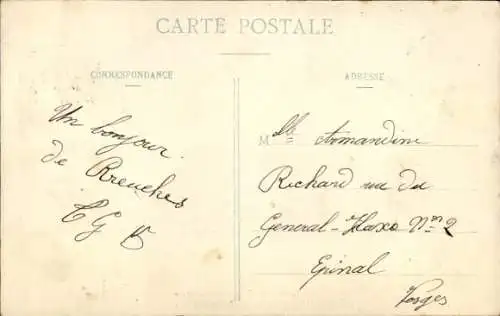 CARTE POSTALE
CORRESPONDANCE
Un bonjour
de
ADRESSE
Mlle Armandine
Richard rue du
General-Haxo Nº 2
Epinal
Vosges